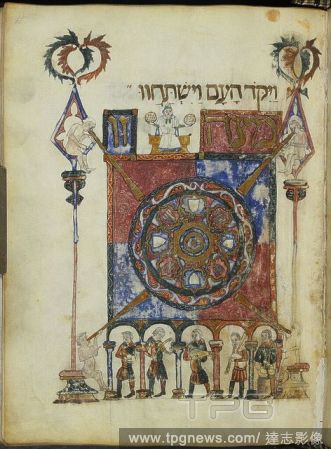 ויקד העם וישתחוו
מצה זו
TPG
www.tpgnews.com/ 達志影像